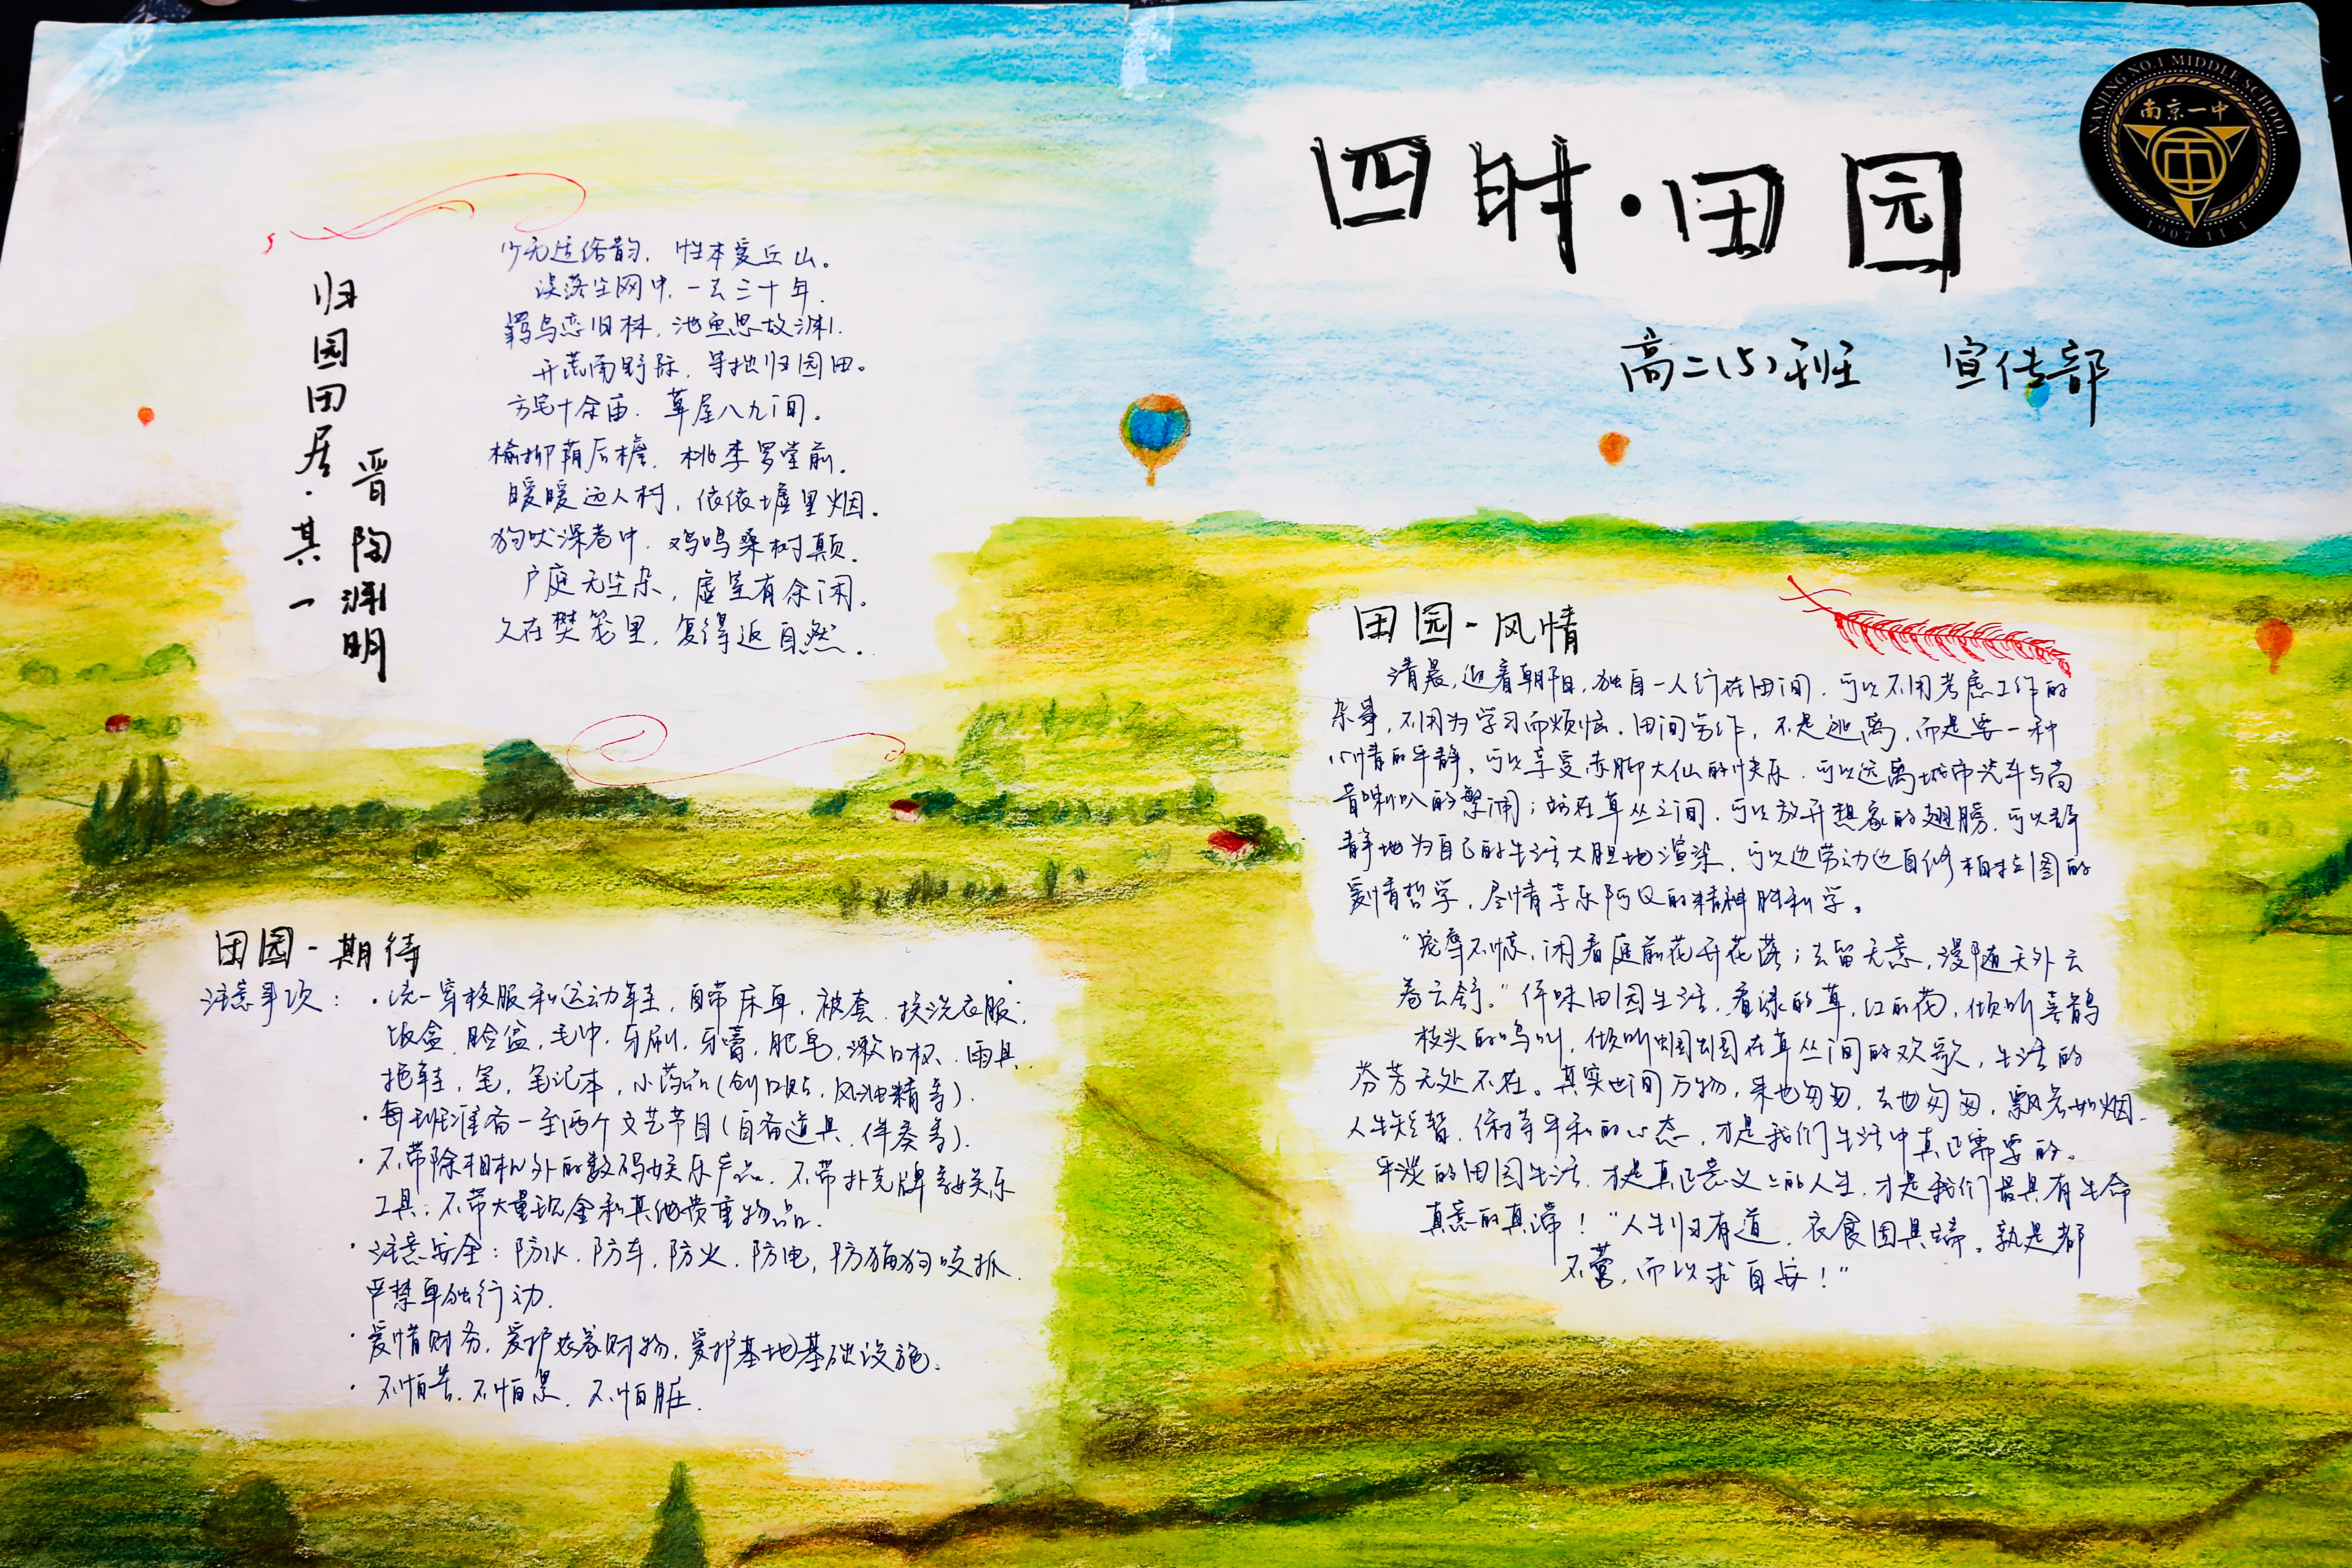 四时·田园
高二(5)班 宣传部
NANJING NO.1 MIDDLE SCHOOL
南京一中
1907.11.1
归园田居·其一
晋 陶渊明
少无适俗韵，性本爱丘山。
误落尘网中，一去三十年．
羁鸟恋旧林，池鱼思故渊．
开荒南野际，守拙归园田。
方宅十余亩．草屋八九间。
榆柳荫后檐．桃李罗堂前．
暧暧远人村，依依墟里烟．
狗吠深巷中．鸡鸣桑树颠．
户庭无尘杂，虚室有余闲．
久在樊笼里，复得返自然．
田园-期待
注意事项：·统一穿校服和运动鞋，自带床单，被套．换洗衣服；
饭盒．脸盆，毛巾，牙刷，牙膏，肥皂，漱口杯．雨具．
拖鞋，笔，笔记本，小药品(创口贴，风油精等)．
·每班准备一至两个文艺节目(自备道具．伴奏等)．
·不带除相机外的数码娱乐产品．不带扑克牌等娱乐
工具；不带大量现金和其他贵重物品．
·注意安全：防水，防车，防火，防电，防猫狗咬抓．
严禁单独行动．
·爱惜财务，爱护农家财物，爱护基地基础设施．
·不怕苦．不怕累．不怕脏．
田园-风情
清晨，迎着朝阳，独自一人行在田间．可以不用考虑工作的
杂事，不用为学习而烦恼．田间劳作，不是逃离，而是要一种
心情的平静，可以享受赤脚大仙的快乐．可以远离城市汽车与高
音喇叭的繁闹；站在草丛之间，可以放开想象的翅膀，可以平
静地为自己的生活大胆地渲染，可以边劳动边自修柏拉图的
爱情哲学，尽情享乐阿Q的精神胜利学。
“宠辱不惊，闲看庭前花开花落；去留无意，漫随天外云
卷云舒。”仔味田园生活，看绿的草，红的花，倾听喜鹊
枝头的鸣叫，倾听蝈蝈在草丛间的欢歌，生活的
芬芳无处不在。其实世间万物，来也匆匆，去也匆匆，飘若如烟．
人生短暂．保持平和的心态，才是我们生活中真正需要的。
平淡的田园生活．才是真正意义上的人生，才是我们最具有生命
真意的真谛！“人生归有道，衣食固其端。孰是都
不营，而以求自安！”